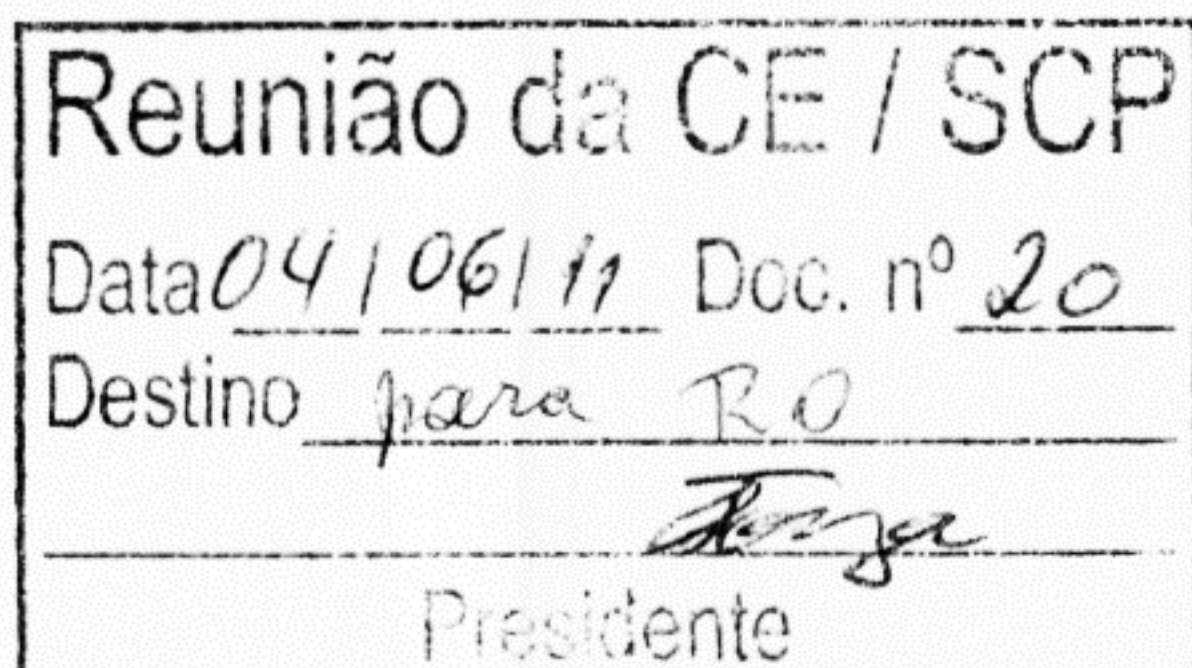 Reunião da CE / SCP
Data 04 / 06 / 11 Doc. nº 20
Destino para RO
Presidente